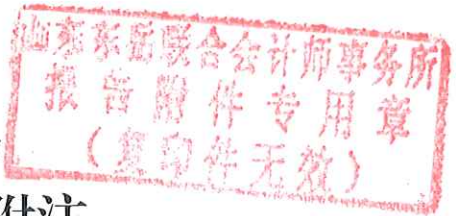 山东东岳联合会计师事务所
报告附件专用章
(复印件无效)
附注